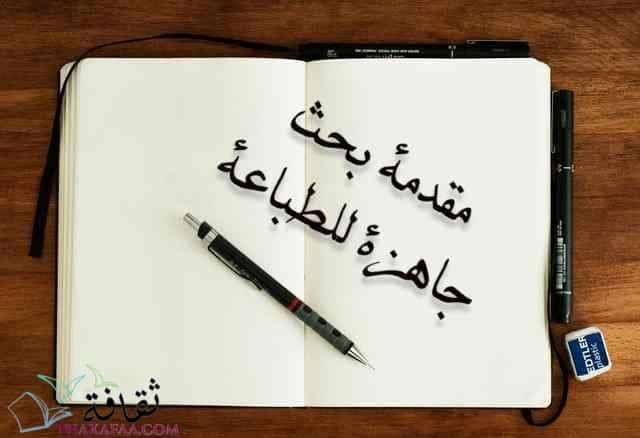 مقدمة بحث
جاهزة للطباعة
EDTLER
plastic
ثقافة
THAKAFAA.COM